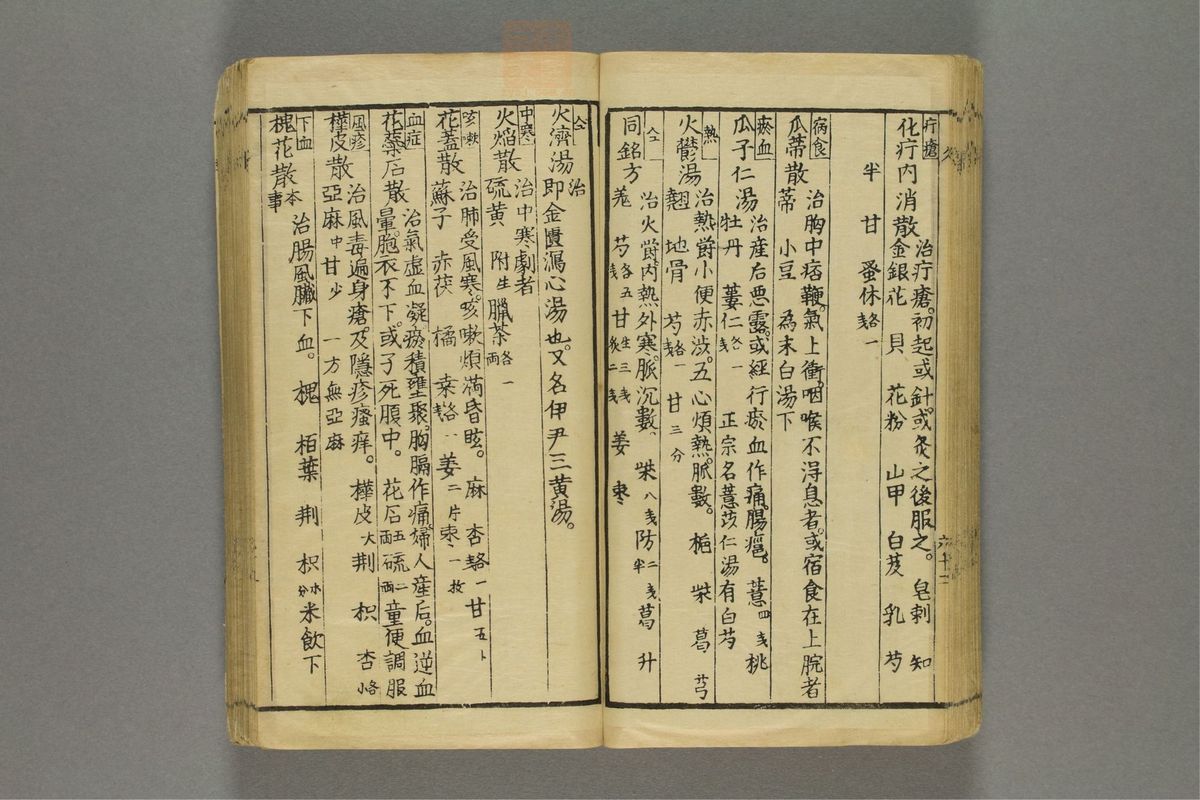 疔瘡
化疔内消散 治疔瘡。初起或針。或灸之後服之。 皂刺 知
金銀花 貝 花粉 山甲 白芨 乳 芍
半 甘 蚤休各一戋
病食
瓜蒂散 治胸中痞鞕。氣上衝。咽喉不浔息者。或宿食在上脘者
蒂 小豆 為末白湯下
瘀血
瓜子仁湯 治産后悪露。或経行瘀血作痛。腸癰。 薏四戋 桃
牡丹 蔞仁各一戋 正宗名薏苡仁湯有白芍
熱
火鬱湯 治熱欝小便赤渋。五心煩熱。脈數。 梔 柴 葛 芎
翹 地骨 芍各一戋 甘三分
仝
同銘方 治火欝。内熱外寒。脈沉數、 柴八戋 防二戋半 葛 升
羌 芍各五戋 甘生三戋炙二戋 姜 枣
仝
火濟湯 治 即金匱瀉心湯也。又名伊尹三黄湯。
中寒
火焔散 治中寒劇者
硫黄 附生 臘茶各一兩
咳嗽
花蓋散 治肺受風寒。咳嗽煩満昏眩。 麻 杏各一戋 甘五卜
蘇子 赤茯 橘 桒各一戋 姜二片 枣一枚
血症
花蘂石散 治氣虚血凝。瘀積壅聚。胸膈作痛。婦人産后。血逆血
暈。胞衣不下。或子死腹中。 花石五兩 硫二兩 童便調服
風疹
樺皮散 治風毒遍身瘡。及隠疹瘙痒。 樺皮大 荆 枳 杏各小
亞麻中 甘少 一方無亞麻
下血
槐花散本事 治腸風臓下血。 槐 栢葉 荆 枳各等分 米飲下
六十二